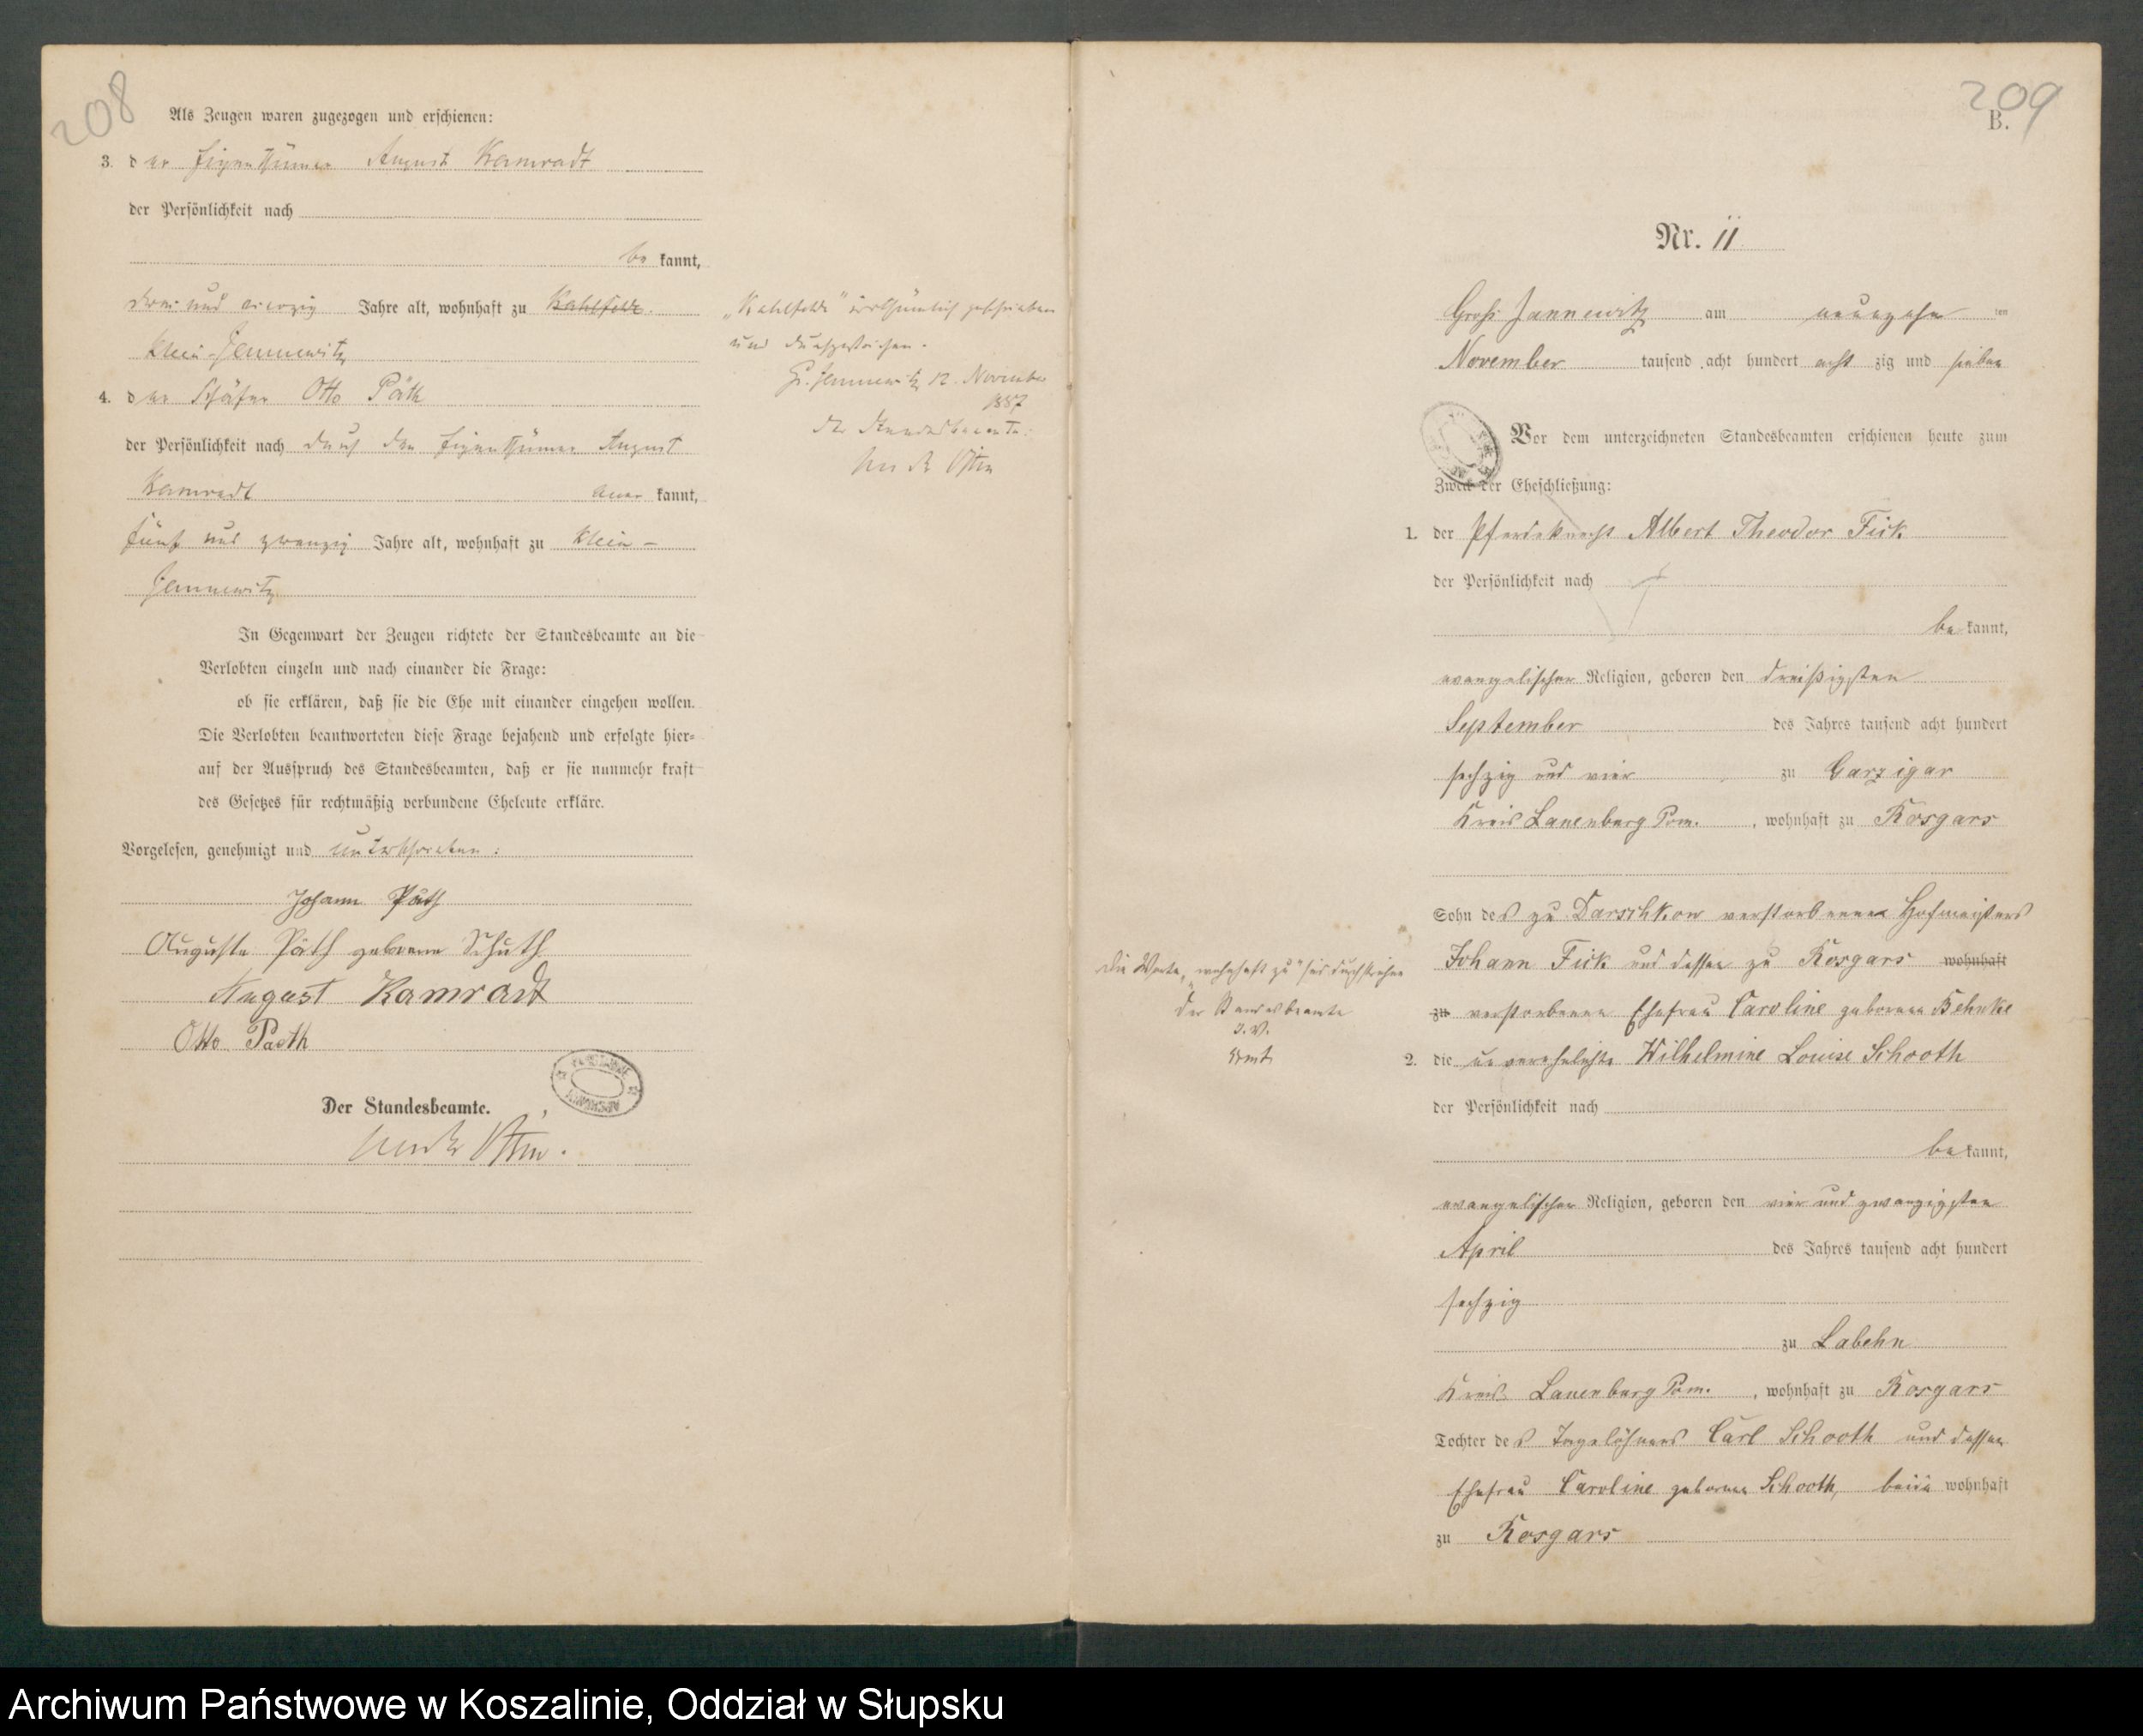 208
Als Zeugen waren zugezogen und erschienen:
3. der Eigenthümer August Kamradt
der Persönlichkeit nach
be kannt,
drei und vierzig Jahre alt, wohnhaft zu Kahlfelde.
Klein-Jannewitz
4. der Schäfer Otto Päth
der Persönlichkeit nach durch den Eigenthümer August
Kamradt aner kannt,
fünf und zwanzig Jahre alt, wohnhaft zu Klein-
Jannewitz
In Gegenwart der Zeugen richtete der Standesbeamte an die
Verlobten einzeln und nach einander die Frage:
ob sie erklären, daß sie die Ehe mit einander eingehen wollen.
Die Verlobten beantworteten diese Frage bejahend und erfolgte hier-
auf der Ausspruch des Standesbeamten, daß er sie nunmehr kraft
des Gesetzes für rechtmäßig verbundene Eheleute erkläre.
Vorgelesen, genehmigt und unterschrieben:
Johann Päth
Auguste Päth geborene Schuth
August Kamradt
Otto Paeth
Der Standesbeamte.
„Kahlfelde" irrthümlich geschrieben
und durchgestrichen.
Gr. Jannewitz 12. November
1887
Der Standesbeamte:
209
B.
Nr. 11
Groß Jannewitz am neunzehn ten
November tausend acht hundert acht zig und sieben
Vor dem unterzeichneten Standesbeamten erschienen heute zum
Zweck der Eheschließung:
1. der Pferdeknecht Albert Theodor Fick
der Persönlichkeit nach
be kannt,
evangelischer Religion, geboren den dreißigsten
September des Jahres tausend acht hundert
sechzig und vier zu Garzigar
Kreis Lauenburg Pom. , wohnhaft zu Rosgars
Sohn des zu Darschkow verstorbenen Hofmeisters
Johann Fick und dessen zu Rosgars wohnhaft
zu verstorbenen Ehefrau Caroline geborene Behnke
Die Worte „wohnhaft zu" sind durchstrichen
Der Standesbeamte
I. V.
2. die unverehelichte Wilhelmine Louise Schooth
der Persönlichkeit nach
be kannt,
evangelischer Religion, geboren den vier und zwanzigsten
April des Jahres tausend acht hundert
sechzig
zu Labehn
Kreis Lauenburg Pom. , wohnhaft zu Rosgars
Tochter des Tagelöhners Carl Schooth und dessen
Ehefrau Caroline geborene Schooth, beide wohnhaft
zu Rosgars
Archiwum Państwowe w Koszalinie, Oddział w Słupsku